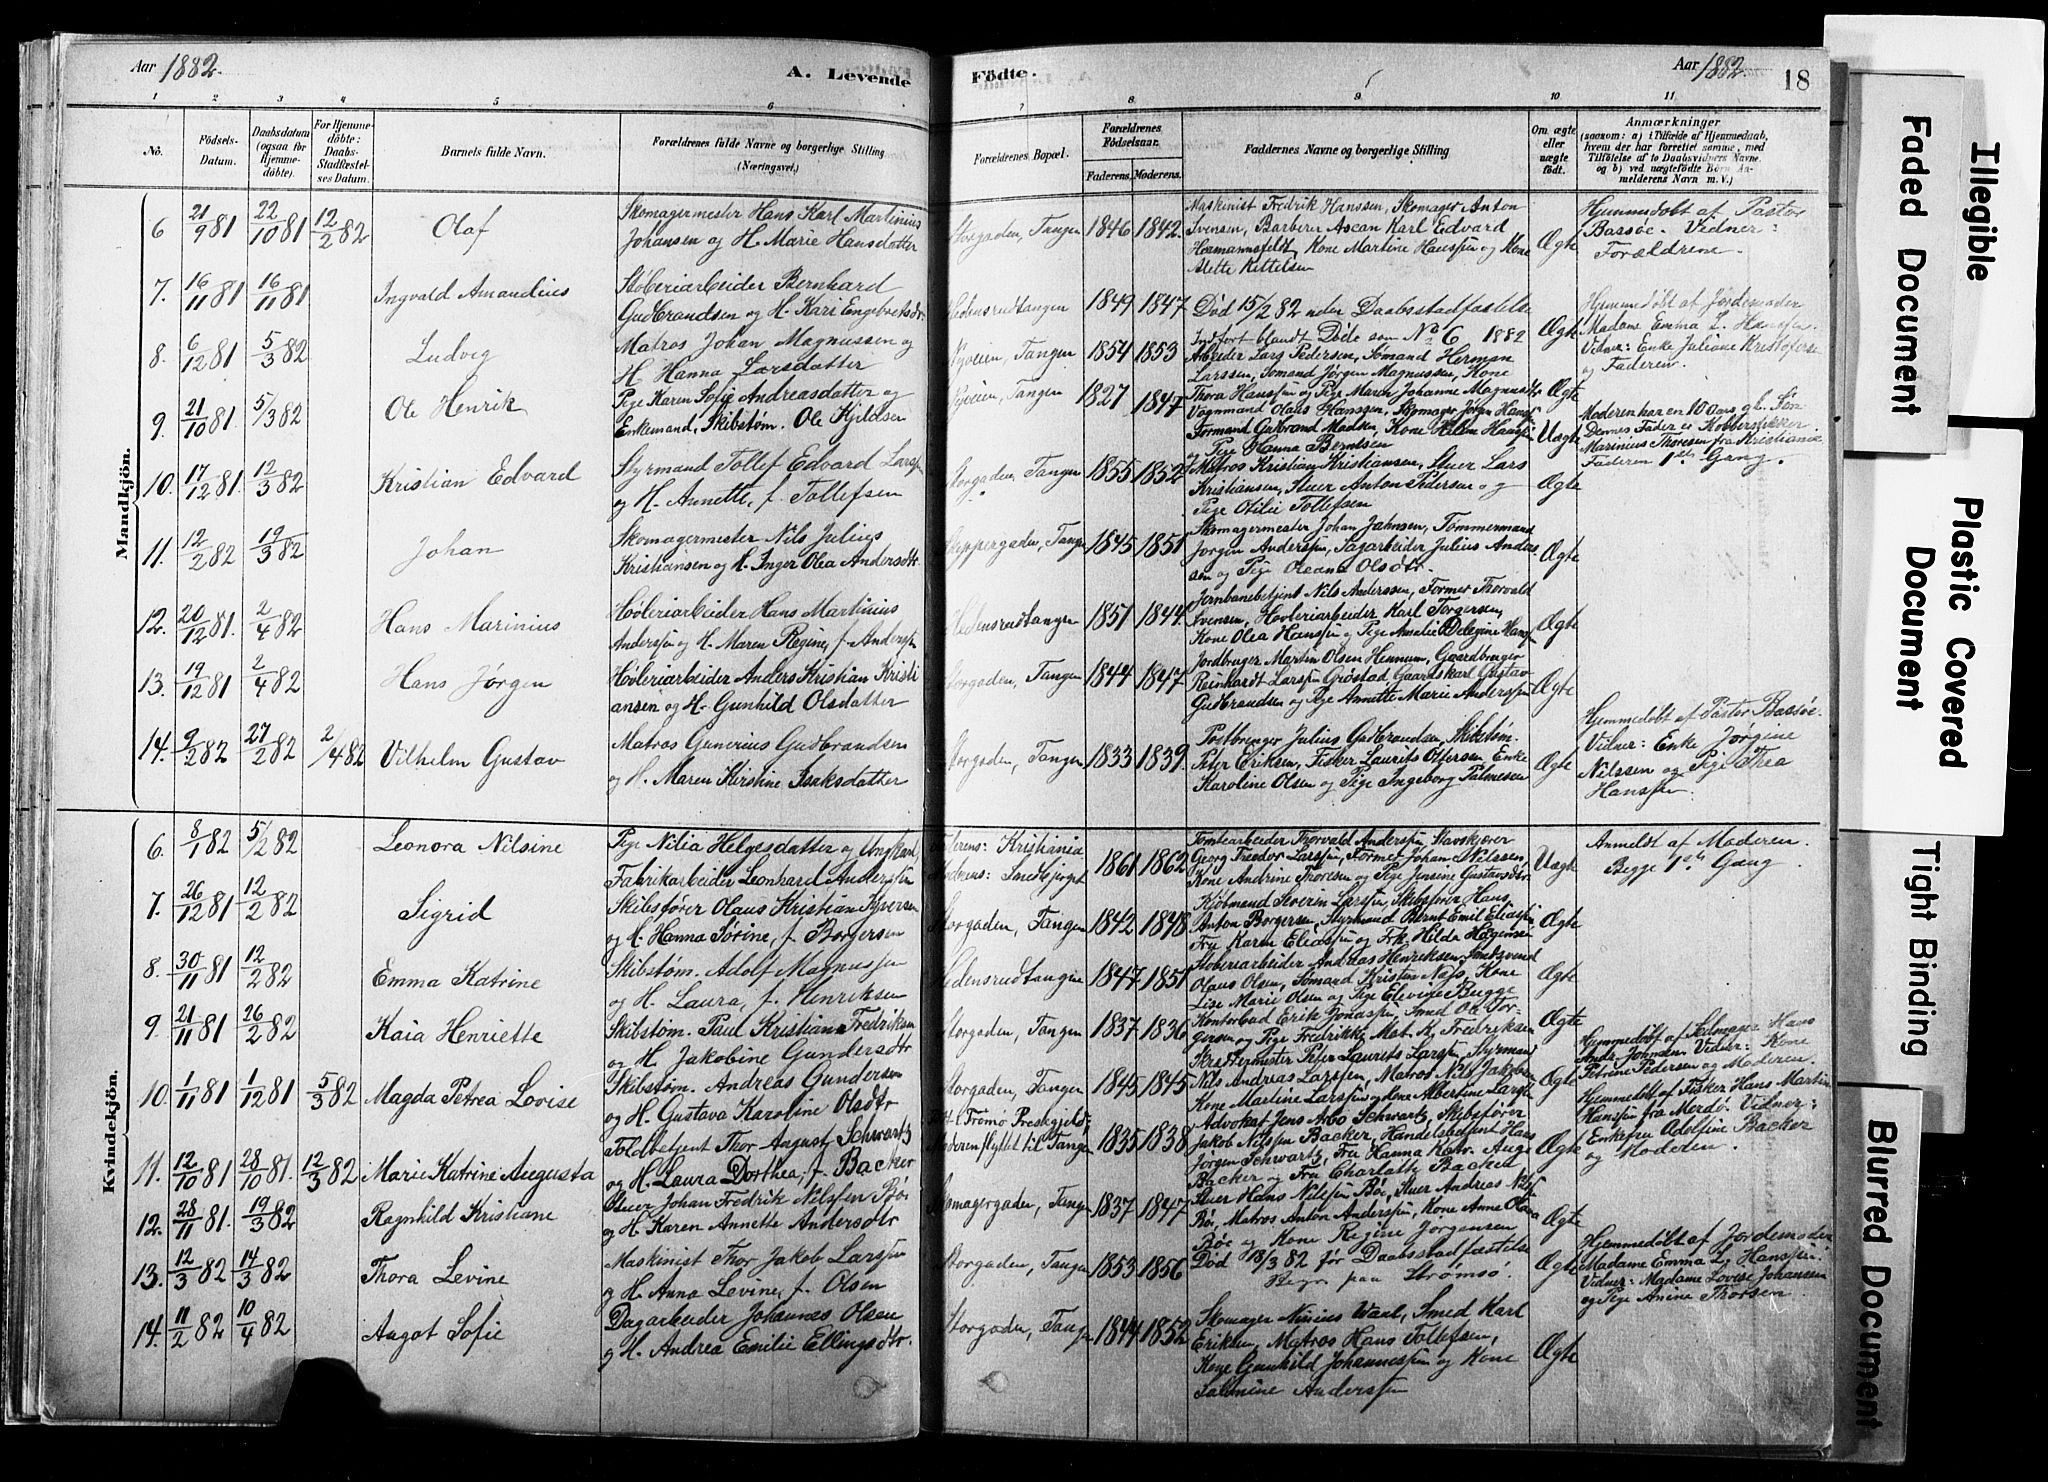 Aar 1882.
A. Levende
Födte.
Aar 1882.
18
1 2 3 4 5 6 7 8 9 10 11
No.
Födsels-
Datum.
Daabsdatum
(ogsaa for
Hjemme-
döbte).
For Hjemme-
döbte:
Daabs-
Stadfæstel-
ses Datum.
Barnets fulde Navn.
Forældrenes fulde Navne og borgerlige Stilling
(Næringsvei.)
Forældrenes Bopæl.
Forældrenes
Födselsaar.
Faderens. Moderens.
Faddernes Navne og borgerlige Stilling
Om ægte
eller
uægte
födt.
Anmærkninger
(saasom: a) i Tilfælde af Hjemmedaab,
hvem der har forrettet samme, med
Tilföielse af to Daabsvidners Navne.
og b) ved uægtefödte Börn An-
melderens Navn m. V.)
Mandkjön.
6 21/9 81 22/10 81 12/2 82 Olaf
Skomagermester Hans Karl Martinius
Johansen og H. Marie Hansdatter
Storgaden, Tangen 1846 1842.
Maskinist Fredrik Hanssen, Skomager Anton
Svensen, Barberer Ascan Karl Edvard
Hermannsfeldt, Kone Martine Hanssen og Kone
Mette Kittelsen
Ægte
Hjemmedøbt af Pastor
Bassøe. Vidner:
Forældrene.
7. 16/11 81 16/11 81 Ingvald Amandius
Støberiarbeider Bernhard
Gudbrandsen og H. Kari Engebretsdtr
Hedensrudtangen 1849 1847
Død 15/2 82 uden Daabsstadfæstelse
Indført blandt Døde som No 6 1882
Ægte
Hjemmedøbt af Jordemoder
Madame Emma L. Hanssen.
Vidner: Enke Juliane Kristofersen
og Faderen.
8. 6/12 81 5/3 82 Ludvig
Matros Johan Magnussen og
H. Hanna Larsdatter
Nyveien, Tangen 1854 1853
Arbeider Lars Pedersen, Sømand Herman
Larssen, Sømand Jørgen Magnussen, Kone
Thora Hanssen og Pige Maren Johanne Magnusdtr
Ægte
9. 21/10 81 5/3 82 Ole Henrik
Pige Karen Sofie Andreasdatter og
Enkemand, Skibstøm. Ole Kjeldsen
Nyveien, Tangen 1827 1847
Vognmand Olaus Hanssen, Skomager Jørgen Hansen
Formand Gudbrand Madsen, Kone Helene Hanssen
og Pige Hanna Berntsen
Uægte
Moderen har en 10 Aars gl. Søn
Dennes Fader er Kobberstikker
Marinius Thoresen fra Kristiania
Faderen 1ste Gang.
10. 17/12 81. 12/3 82 Kristian Edvard
Styrmand Tollef Edvard Larssen
og H. Annette, f. Tollefsen
Storgaden, Tangen 1855 1852
Matros Kristian Kristiansen, Stuer Lars
Kristiansen, Stuer Anton Pedersen og
Pige Otilie Tollefsen
Ægte
11. 12/2 82 19/3 82 Johan
Skomagermester Nils Julius
Kristiansen og H. Inger Olea Andersdtr.
Skippergaden, Tangen 1845 1851
Skomagermester Johan Jahnsen, Tømmermand
Jørgen Anderssen, Sagarbeider Julius Anders
sen og Pige Oleana Olsdtr.
Ægte
12. 20/12 81. 2/4 82 Hans Marinius
Høvleriarbeider Hans Martinius
Anderssen og H. Maren Regine, f. Anderssen
Hedensrudtangen 1851 1844.
Jernbanebetjent Nils Anderssen, Former Thorvald
Svensen, Høvleriarbeider Karl Torgersen,
Kone Olea Hanssen og Pige Amalie
Ægte
13. 19/12 81 2/4 82 Hans Jørgen
Høvleriarbeider Anders Kristian Kristi
ansen og H. Gunhild Olsdatter
Storgaden, Tangen 1844 1847
Jordbruger Martin Olsen Hennum, Gaardbruger
Reinhardt Larssen Grøstad Gaardskarl Gustav
Gudbrandsen og Pige Annette Marie Anderssen
Ægte
14. 9/2 82 27/2 82 2/4 82 Vilhelm Gustav
Matros Gunerius Gudbrandsen
og H. Maren Kirstine Isaksdatter
Storgaden, Tangen 1833 1839.
Postbringer Julius Gudbrandsen, Skibstøm.
Peter Eriksen, Fisker Laurits Ottersen Enke
Karoline Olsen og Pige Ingeborg Palmesen
Ægte
Hjemmedøbt af Pastor Bassøe.
Vidner: Enke Jørgine
Nilssen og Pige Thea
Hanssen.
Kvindekjön.
6. 8/1 82 5/2 82 Leonora Nilsine
Pige Nilia Helgesdatter og Ungkarl,
Fabrikarbeider Leonhard Anderssen
Faderens: Kristiania
Moderens: Smedbjerget 1861 1862
Tomtearbeider Thorvald Anderssen, Stavskjærer
Georg Theodor Larssen, Former Johan Nilssen,
Kone Andrine Thoresen og Pige Josine Gustavsdtr.
Uægte
Anmeldt af Moderen.
Begge 1ste Gang
7. 26/12 81 12/2 82 Sigrid
Skibsfører Olaus Kristian Iversen
og H. Hanna Sørine, f. Borgersen
Storgaden, Tangen 1842 1848
Kjøbmand Severin Larssen, Skibsfører Hans
Anton Borgersen, Styrmand Bernt Emil Eliassen
Fru Karen Eliassen og Frk. Hilda Hagensen
Ægte
8. 30/11 81 12/2 82 Emma Katrine
Skibstøm. Adolf Magnussen
og H. Laura, f. Henriksen
Hedensrudtangen 1847 1851
Støberiarbeider Andreas Henriksen,
Olaus Olsen, Sømand Kristen Næss, Kone
Lise Marie Olsen og Pige Elevine Bugge
Ægte
9. 21/11 81 26/2 82 Kaia Henriette
Skibstøm. Paul Kristian Fredriksen
og H. Jakobine Gundersdtr
Storgaden, Tangen 1837 1836
Kontorbud Erik Jonassen, Smed Ole Tor-
gersen og Pige Fredrikke Mat. K. Fredriksen
Ægte
10. 1/11 81 1/12 81 5/3 82 Magda Petrea Lovise
Skibstøm. Andreas Gundersen
og H. Gustava Karoline Olsdtr
Storgaden, Tangen 1845 1845
Skrædermester Peter Laurits Larssen, Styrmand
Nils Andreas Larssen, Matros Nils Jakobsen
Kone Martine Larssen og Kone Albertine Larssen
Ægte
Hjemmedøbt af Seilmager Hans
Andr. Johnsen. Vidner: Kone
Petrine Pedersen og Moderen.
11. 12/10 81 28/10 81. 12/3 82 Marie Katrine Augusta
Toldbetjent Thor August Schwartz
og H. Laura Dorthea, f. Backer
Tromø Præstegjeld
Moderen flyttet til Tangen 1835 1838
Advokat Jens Arbo Schwartz, Skibsfører
Jakob Nilssen Backer, Handelsbetjent Hans
Jørgen Schwartz, Fru Hanna Katr. Aug.
Backer og Fru Charlotte Backer
Ægte
Hjemmedøbt af Fisker Hans Martin
Hanssen fra Merdø. Vidner:
Enkefru Adolfine Backer
og Moderen.
12. 28/11 81. 19/3 82 Ragnhild Kristiane
Stuer Johan Fredrik Nilssen Bøe
og H. Karen Annette Andersdtr
Skomagergaden, Tangen 1837 1847
Stuer Hans Nilssen Bøe, Stuer Andreas Nilss.
Bøe, Matros Anton Anderssen, Kone Anne Olava
Bøe og Kone Regine Jørgensen
Ægte
13. 12/3 82 14/3 82 Thora Levine
Maskinist Thor Jakob Larssen
og H. Anna Levine, f. Olsen
Storgaden, Tangen 1853 1856
Død 18/3 82 før Daabsstadfæstelse
Begr. paa Strømsø.
Ægte
Hjemmedøbt af Jordemoder
Madame Emma L. Hanssen
Vidner: Madame Lovise Johansen
og Pige Anine Thorsen.
14. 11/2 82 10/4 82 Aagot Sofie
Dagarbeider Johannes Olsen
og H. Andrea Emilie Ellingsdtr.
Storgaden, Tangen 1844 1852
Skomager Ninius Waal, Smed Karl
Eriksen, Matros Hans Tollefsen,
Kone Gunhild Johannessen og Kone
Salomine Anderssen
Ægte
Illegible
Faded Document
Plastic Covered
Document
Tight Binding
Blurred Document